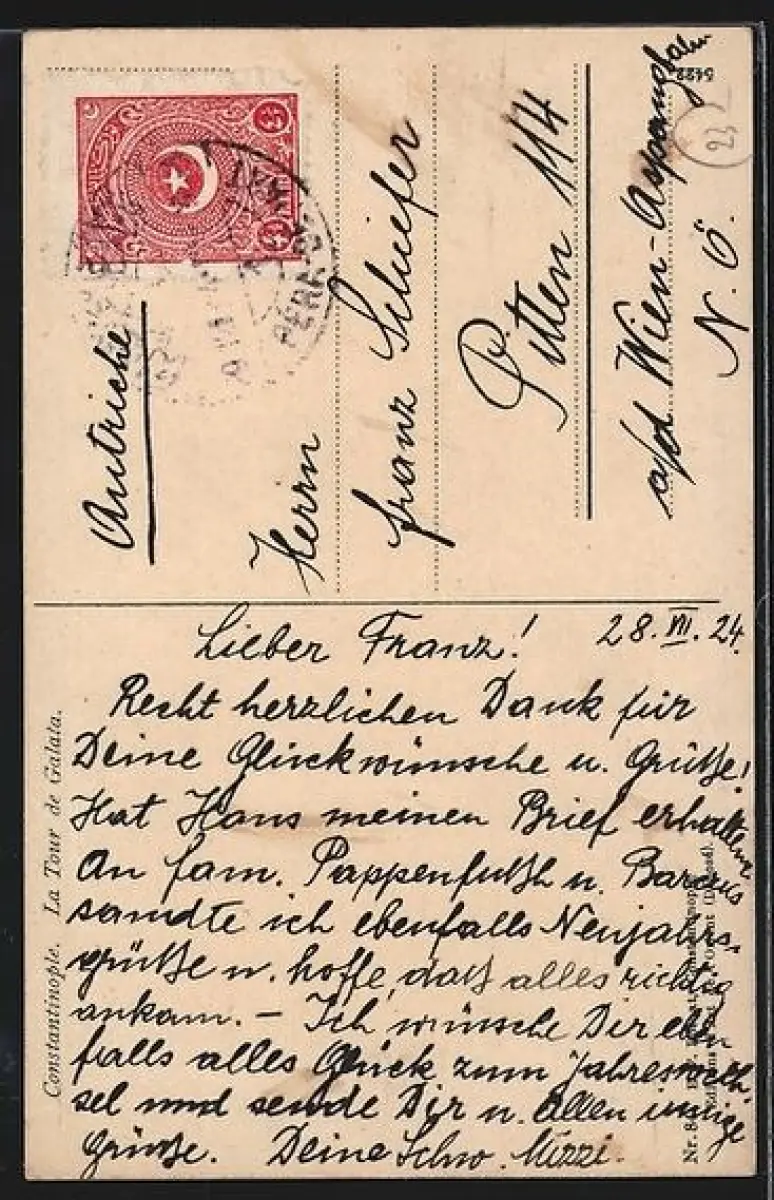 Autriche
Herrn
Franz Schiefer
Pitten 114
a/d Wien-Aspangbahn
N. Ö.
5422
23
PERA
Constantinople. La Tour de Galata.
28. VII. 24.
Lieber Franz!
Recht herzlichen Dank für
Deine Glückwünsche u. Grüße!
Hat Hans meinen Brief erhalten
An Fam. Pappenfußl u. Barcus
sandte ich ebenfalls Neujahrs-
grüße u. hoffe, daß alles richtig
ankam. – Ich wünsche Dir eben
falls alles Glück zum Jahreswech
sel und sende Dir u. Allen innige
Grüße. Deine Schw. Mizzi.